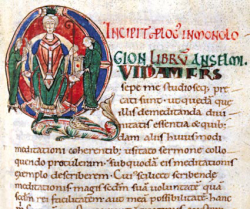 INCIPIT PLOG' IN MONOLO
GION LIBRŪ ANSELMI.
QUIDAM FRS
sepe me studioseq; pre
cati sunt. ut quedā que
illis de meditanda diui
nitatis essentia & quibus
dam aliis huiusmodi
meditationi coherentib; usitato sermone collo
quendo protuleram. sub quodā eis meditationis
exemplo describerem. Cuius scilicet scribende
meditationis magis scdm suā uoluntatē quā
scdm rei facilitatem aut meā possibilitatē hanc